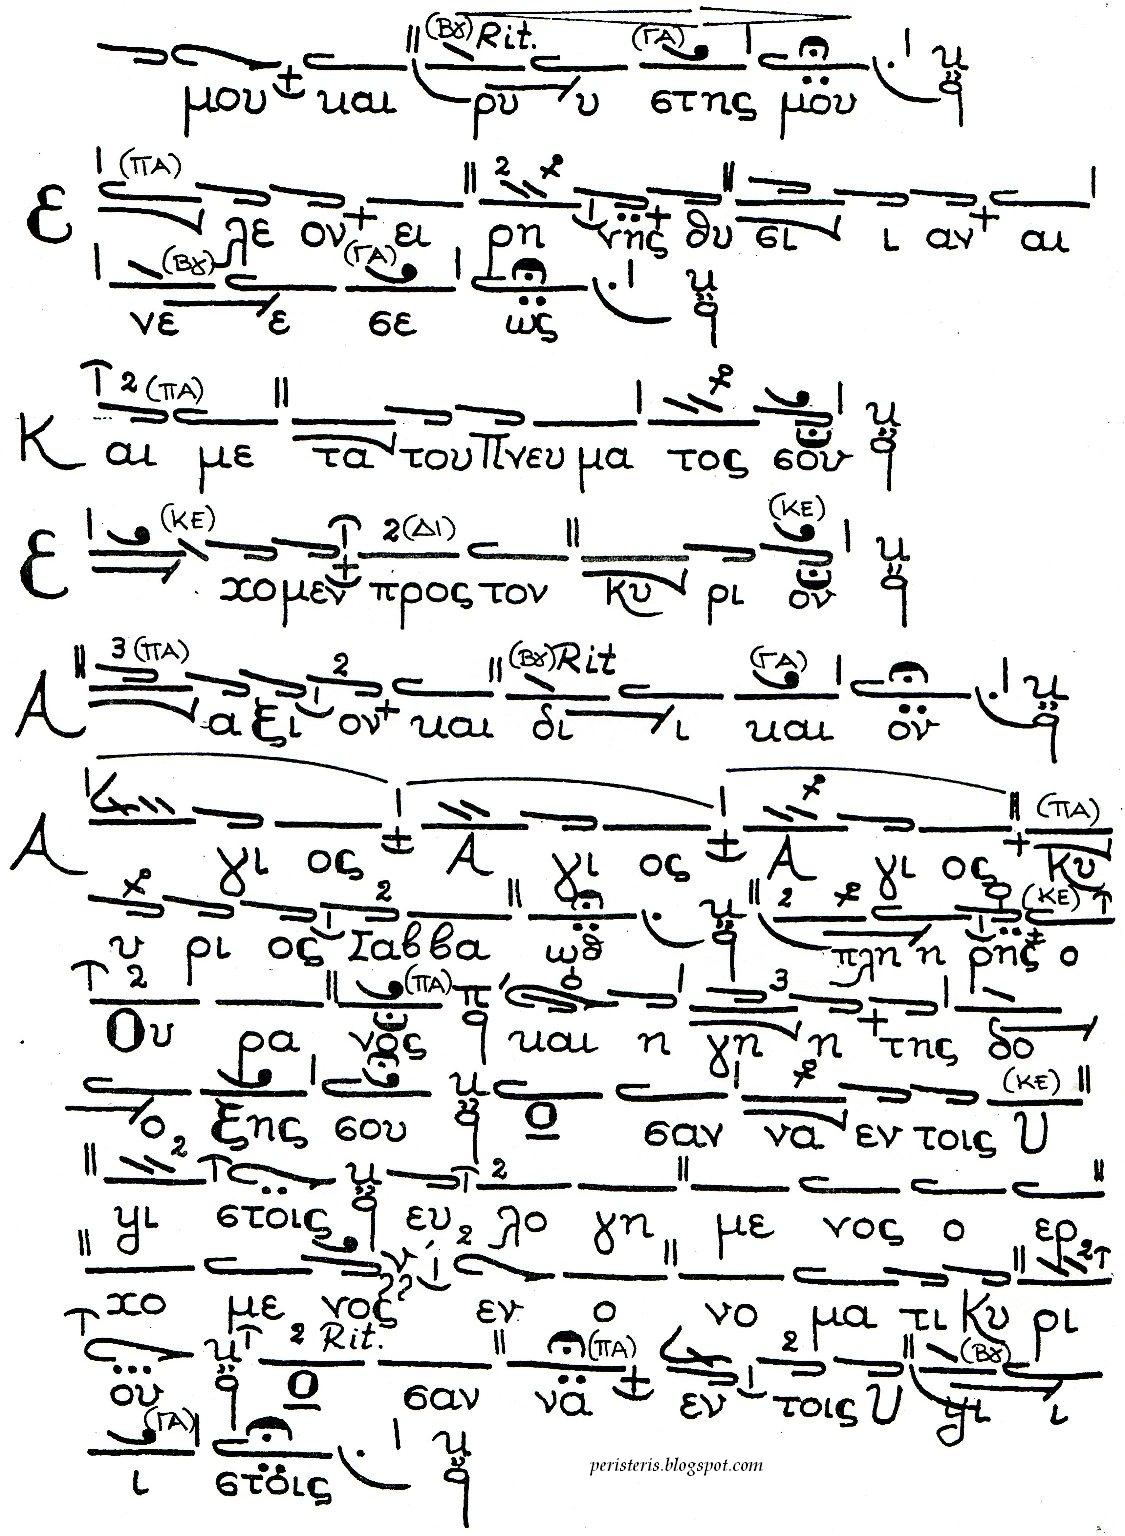 (Βȣ) Rit. (ΓΑ)
μου και ρυ υ στης μου
(ΠΑ) 2
Ε λε ον ει ρη νης θυ σι ι αν αι
(Βȣ) (ΓΑ)
νε ε σε ως
2 (ΠΑ)
Κ αι με τα του Πνευ μα τος σου
(ΚΕ) 2 (ΔΙ) (ΚΕ)
Ε χομεν προς τον Κυ ρι ον
3 (ΠΑ) 2 (Βȣ) Rit (ΓΑ)
Α α ξι ον και δι ι και ον
(ΠΑ)
Α γι ος Α γι ος Α γι ος Κυ
2 2 (ΚΕ)
υ ρι ος Σαββα ωθ πλη η ρης ο
2 (ΠΑ) 3
Ου ρα νος και η γη η της δο
(ΚΕ)
ο ξης σου Ο σαν να εν τοις Υ
2 2
ψι στοις ευ λο γη με νος ο ερ
2 2
χο με νος εν ο νο μα τι Κυ ρι
2 Rit. (ΠΑ) 2 (Βȣ)
ου Ο σαν να εν τοις Υ ψι ι
(ΓΑ)
ι στοις
peristeris.blogspot.com